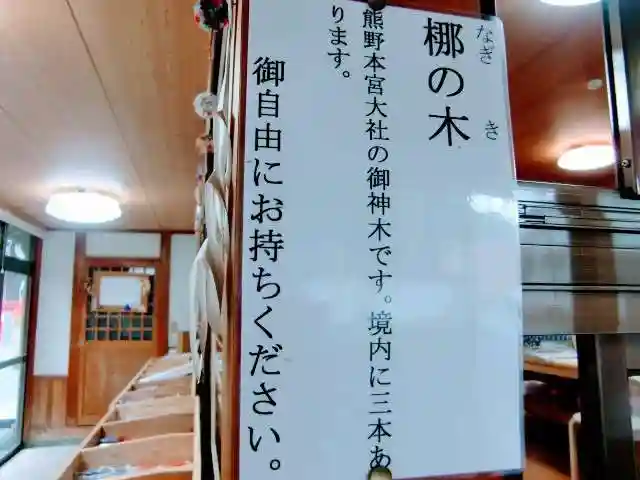 梛の木
なぎ き
熊野本宮大社の御神木です。境内に三本あ
ります。
御自由にお持ちください。